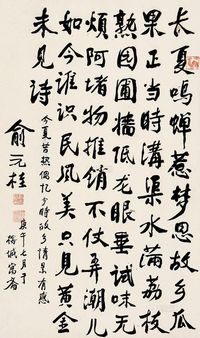 长夏鸣蝉惹梦思故乡瓜
果正当時溝渠水滿荔枝
熟园圃牆低龙眼垂試味无
煩阿堵物推銷不仗弄潮儿
如今谁识民风美只見黄金
未見诗
今夏苦热偶忆少時故乡情景有感
俞元桂
庚午七月于
榕城寓斋